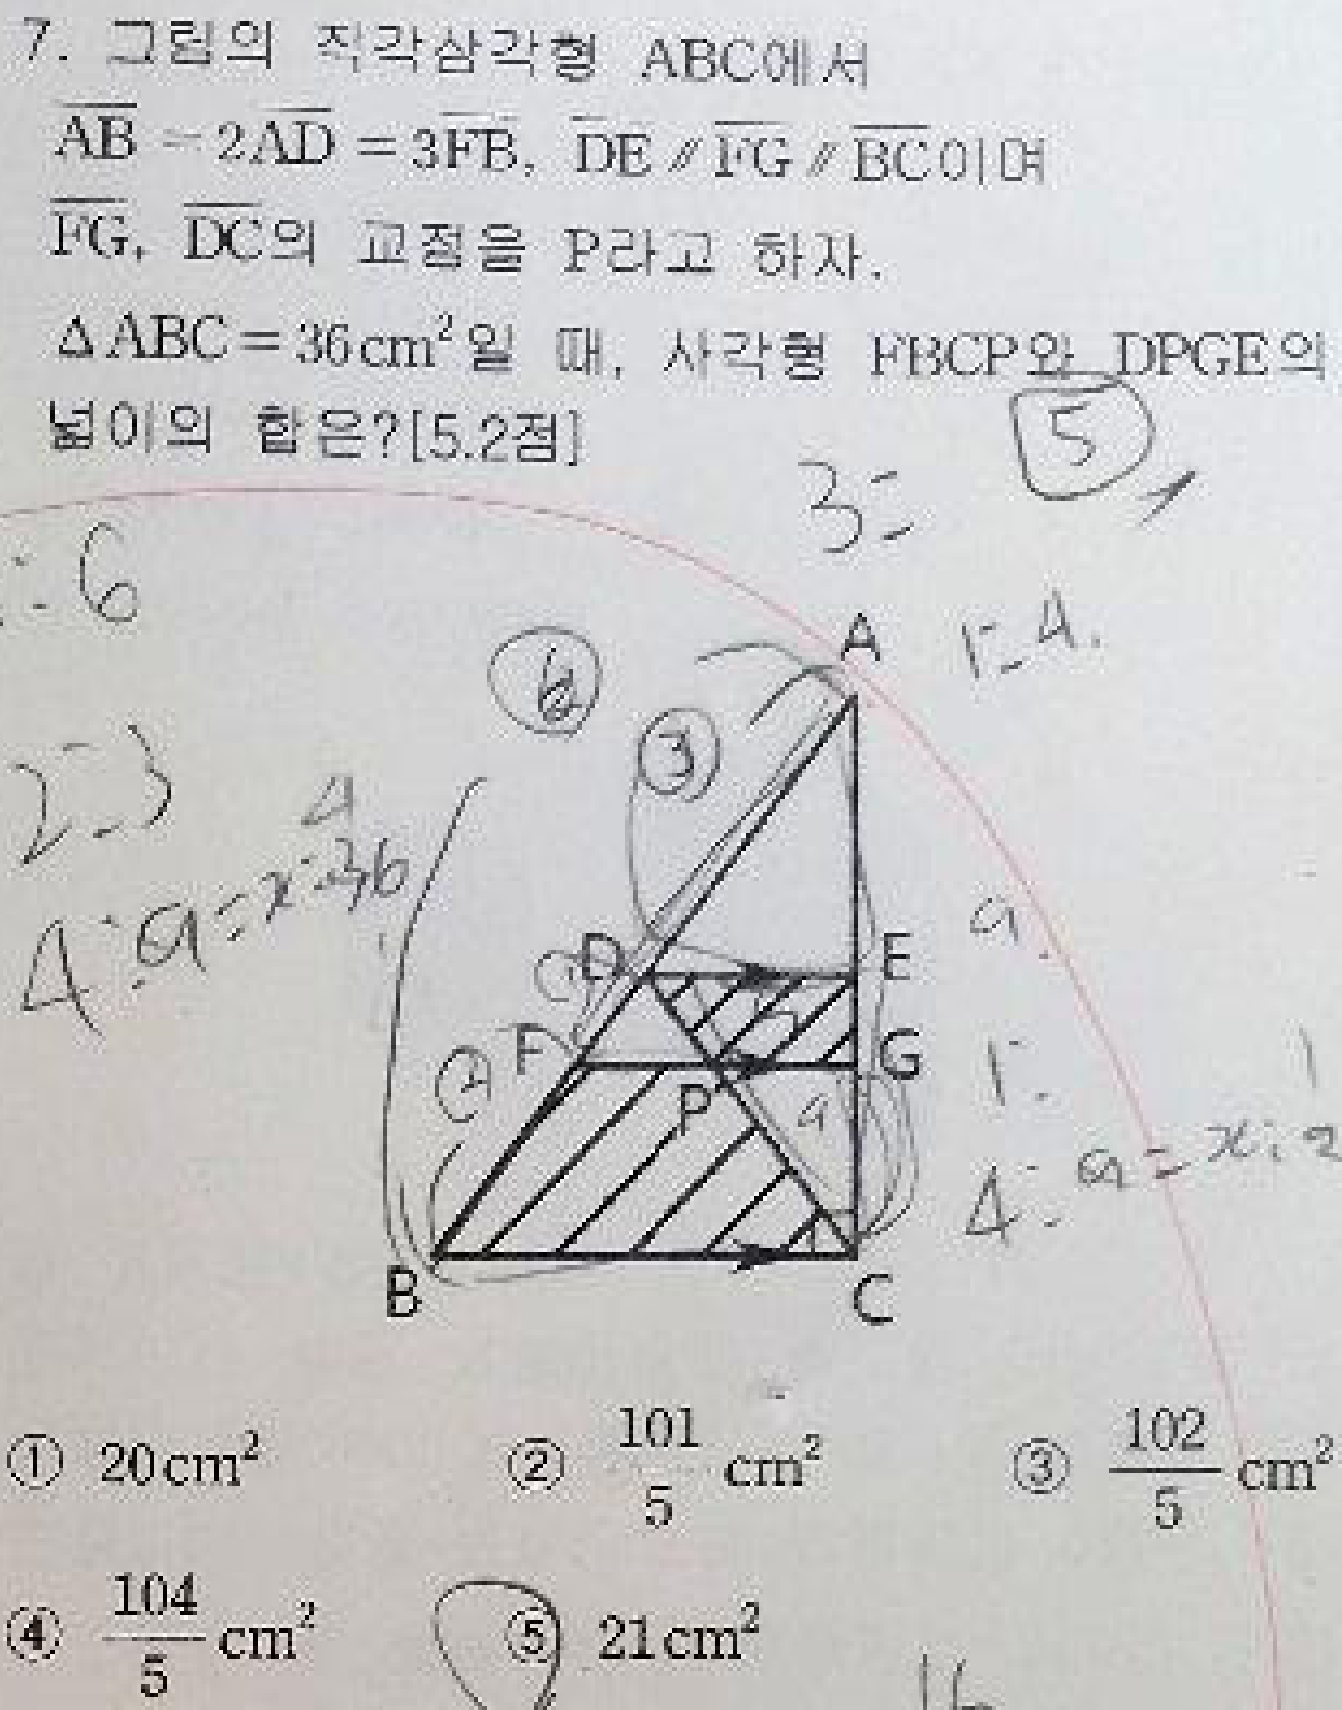 7. 그림의 직각삼각형 ABC에서
AB = 2AD = 3FB, DE // FG // BC이며
FG, DC의 교점을 P라고 하자.
△ABC = 36cm²일 때, 사각형 FBCP와 DPGE의
넓이의 합은?[5.2점]
5
3=
:6
1:4.
6
A
3
2:3
4
4:9=x:36
9:
D
E
2
F
G
1:
P
9
4:9=x:2
B
C
① 20cm²
② 101/5 cm²
③ 102/5 cm²
④ 104/5 cm²
⑤ 21cm²
16